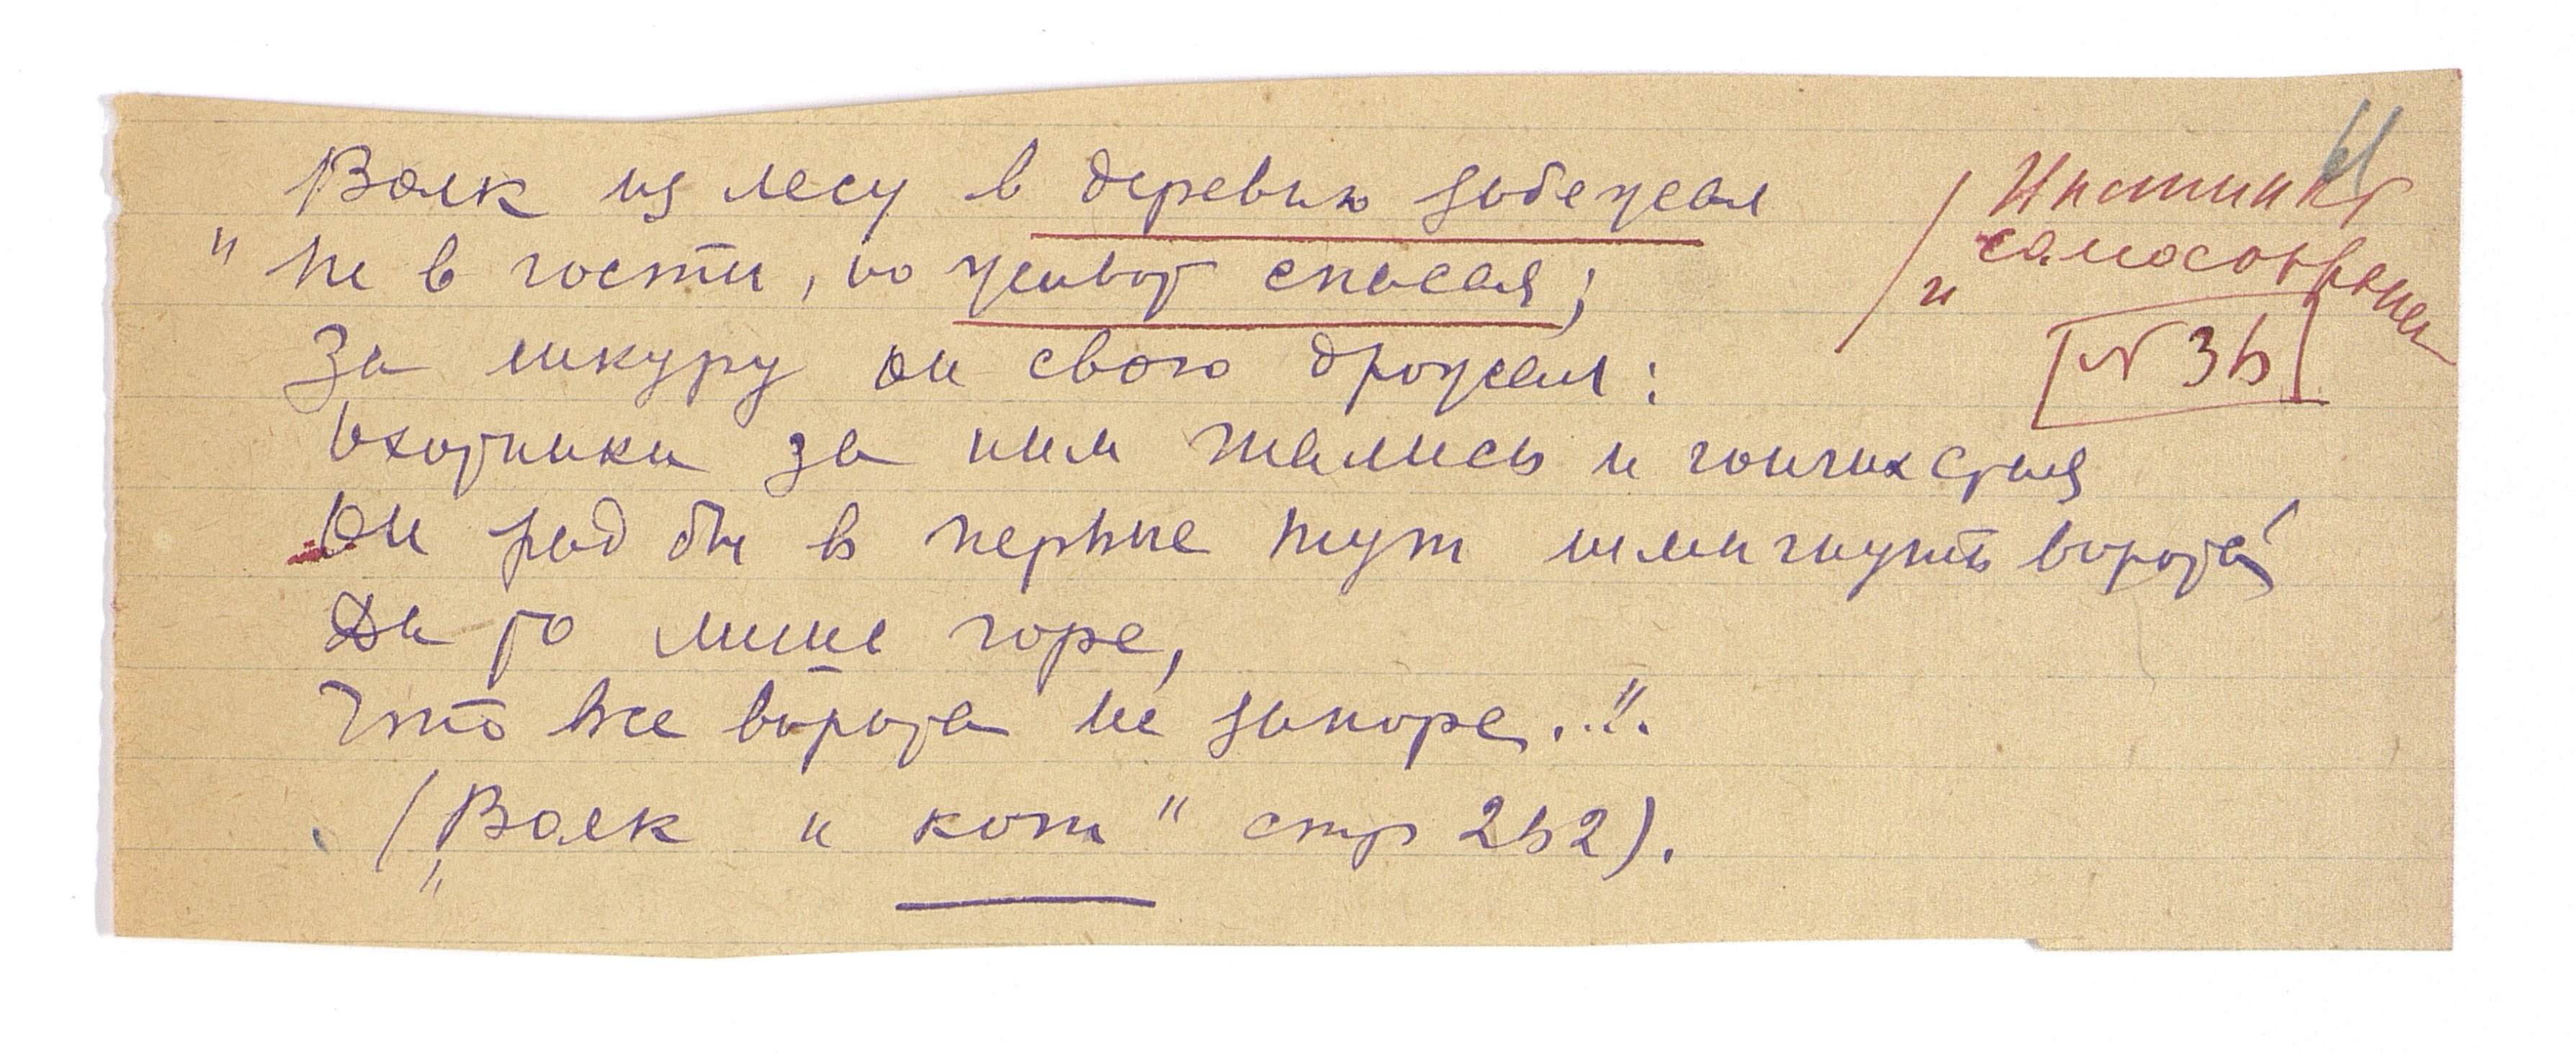 61
Инстинкт
самосохранен
"
[№ 36]
Волк из лесу в деревню забежал
" Не в гости, но живот спасая;
За шкуру он свою дрожал:
Охотники за ним гнались и гончих стая
Он рад бы в первые тут шмыгнуть ворота
Да то лишь горе,
Что все ворота на запоре..."
("Волк и кот" стр 262).